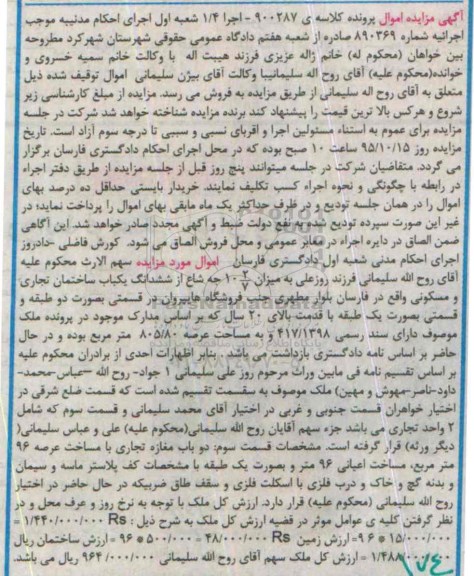 آگهی مزایده اموال پرونده کلاسه ی ۹۰۰۲۸۷ - اجرا ۱/۴ شعبه اول اجرای احکام مدنی به موجب
اجرائیه شماره ۸۹۰۳۶۹ صادره از شعبه هفتم دادگاه عمومی حقوقی شهرستان شهرکرد مطروحه
بین خواهان (محکوم له) خانم ژاله عزیزی فرزند هیبت اله با وکالت خانم سمیه خسروی و
خوانده(محکوم علیه) آقای روح اله سلیمانیبا وکالت آقای بیژن سلیمانی اموال توقیف شده ذیل
متعلق به آقای روح اله سلیمانی از طریق مزایده به فروش می رسد. مزایده از مبلغ کارشناسی زیر
شروع و هرکس بالا ترین قیمت را پیشنهاد کند برنده مزایده شناخته خواهد شد شرکت در جلسه
مزایده برای عموم به استناء مسئولین اجرا و اقربای نسبی و سببی تا درجه سوم آزاد است. تاریخ
مزایده روز ۹۵/۱۰/۱۵ ساعت ۱۰ صبح بوده که در محل اجرای احکام دادگستری فارسان برگزار
می گردد. متقاضیان شرکت در جلسه میتوانند پنج روز قبل از جلسه مزایده از طریق دفتر اجراء
در رابطه با چگونگی و نحوه اجراء کسب تکلیف نمایند. خریدار بایستی حداقل ده درصد بهای
اموال را در همان جلسه تودیع و در ظرف حداکثر یک ماه مابقی بهای اموال را پرداخت نماید؛ در
غیر این صورت سپرده تودیع شده به نفع دولت ضبط و آگهی مجدد صادر خواهد شد. این آگاهی
ضمن الصاق در دایره اجراء در معابر عمومی و محل فروش الصاق می شود. کورش فاضلی -دادورز
اجرای احکام مدنی شعبه اول دادگستری فارسان اموال مورد مزایده سهم الارث محکوم علیه
آقای روح الله سلیمانی فرزند روزعلی به میزان ۲/۷ ۱۰ جه شاع از ششدانگ یکباب ساختمان تجاری
و مسکونی واقع در فارسان بلوار مطهری جنب فروشگاه هایپروان در قسمتی بصورت دو طبقه و
قسمتی بصورت یک طبقه با قدمت بالای ۲۰ سال که بر اساس مدارک موجود در پرونده ملک
موصوف دارای سند رسمی ۴۱۷/۱۳۹۸ و به مساحت عرصه ۸۰۵/۸۰ متر مربع بوده و در حال
حاضر بر اساس نامه دادگستری بازداشت می باشد . بنابر اظهارات احدی از برادران محکوم علیه
بر اساس تقسیم نامه فی مابین وراث مرحوم روز علی سلیمانی ۱ جواد- روح الله –عباس-محمد-
داود-ناصر-مهوش و مهین) ملک موصوف به سقسمت تقیسم شده است که قسمت ضلع شرقی در
اختیار خواهران قسمت جنوبی و غربی در اختیار آقای محمد سلیمانی و قسمت سوم که شامل
۲ واحد تجاری می باشد جزء سهم آقایان روح الله سلیمانی(محکوم علیه) علی و عباس سلیمانی(
دیگر ورثه) قرار گرفته است. مشخصات قسمت سوم: دو باب مغازه تجاری با مساحت عرصه ۹۶
متر مربع، مساحت اعیانی ۹۶ متر و بصورت یک طبقه با مشخصات کف پلاستر ماسه و سیمان
و بدنه گچ و خاک و درب فلزی با اسکلت فلزی و سقف طاق ضربیکه در حال حاضر در اختیار
روح الله سلیمانی (محکوم علیه) قرار دارد. ارزش کل ملک با توجه به نرخ روز و عرف محل و در
نظر گرفتن کلیه ی عوامل موثر در قضیه ارزش کل ملک به شرح ذیل : Rs ۱/۴۴۰/۰۰۰/۰۰۰ =
۱۵/۰۰۰/۰۰۰ * ۹۶ =ارزش زمین Rs ۴۸/۰۰۰/۰۰۰ = ۵۰۰/۰۰۰ * ۹۶ =ارزش ساختمان ریال
۱/۴۸۸/۰۰۰/۰۰۰ =ارزش کل ملک سهم آقای روح الله سلیمانی ۹۶۴/۰۰۰/۰۰۰ ریال می باشد.
۱۷۴